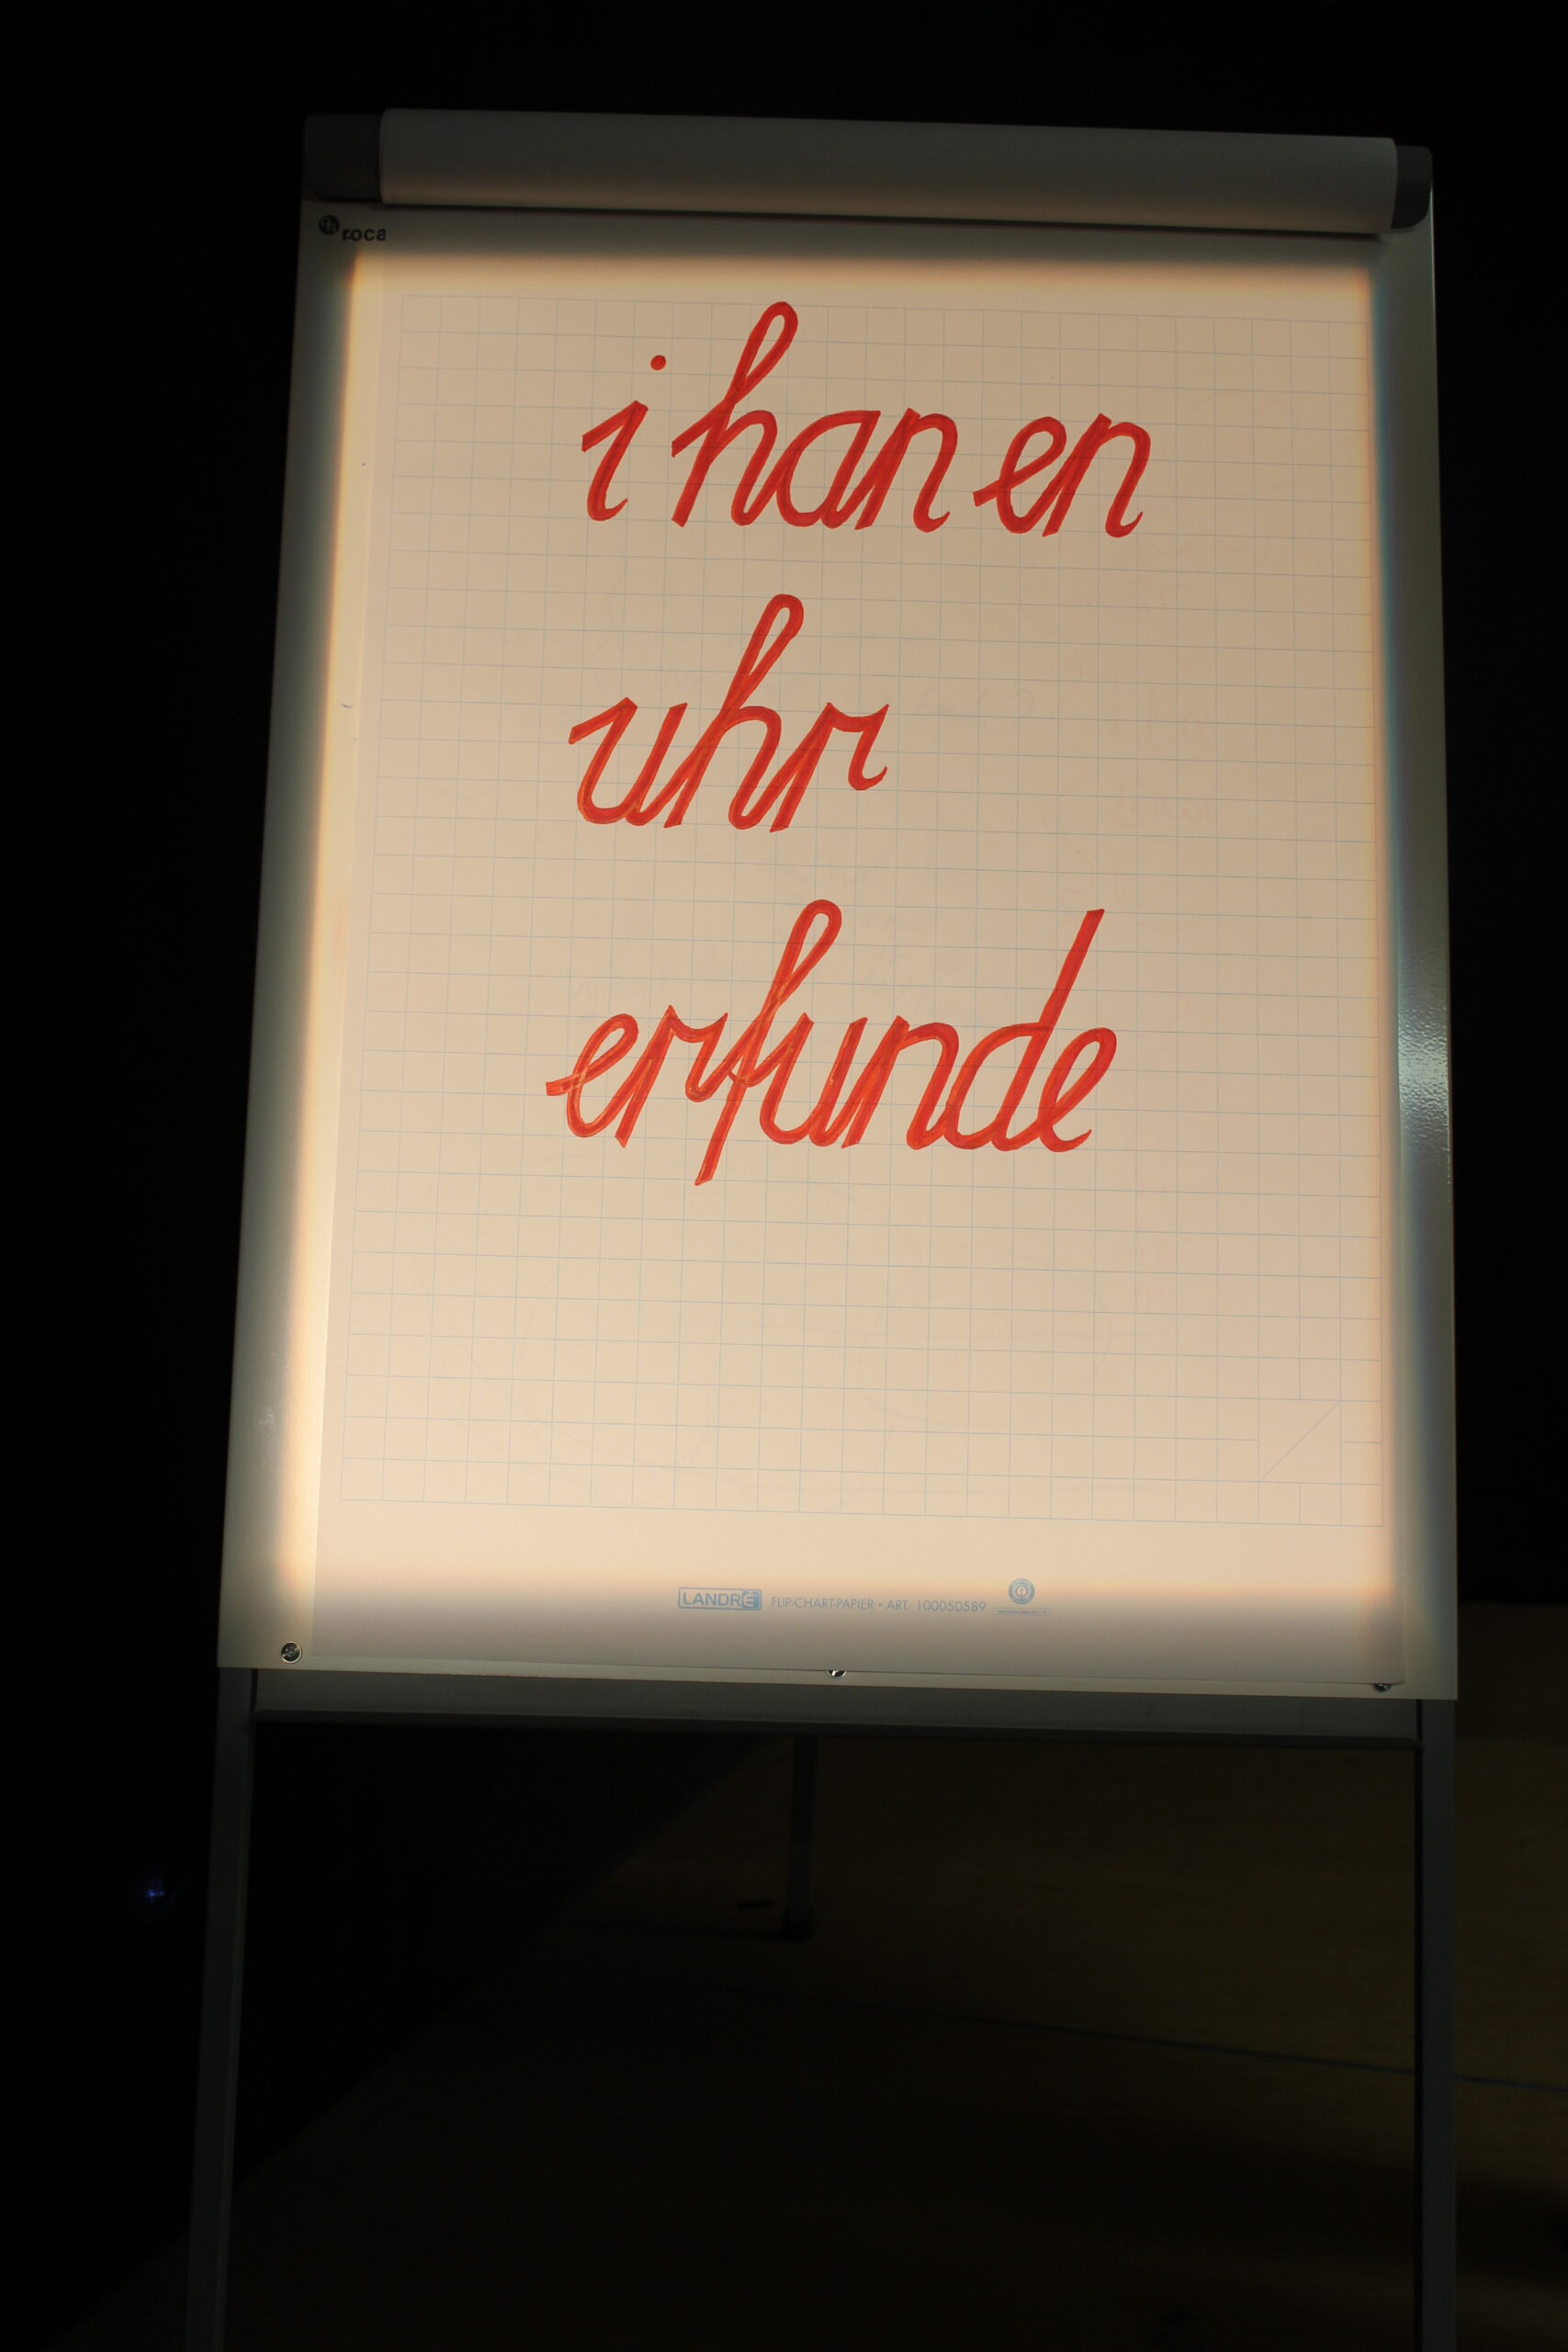 roca
i han en
uhr
erfunde
LANDRÉ FLIP-CHART-PAPIER • ART. 100050589